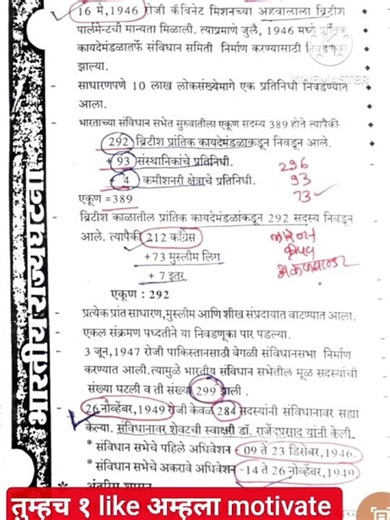 16 मे, 1946 रोजी कॅबिनेट मिशनच्या अहवालाला ब्रिटीश
पार्लमेंटची मान्यता मिळाली. त्याप्रमाणे जुलै, 1946 मध्ये
कायदेमंडळातर्फे संविधान समिती निर्माण करण्यासाठी निवडणूका
झाल्या.
KINEMASTER
साधारणपणे 10 लाख लोकसंख्येमागे एक प्रतिनिधी निवडण्यात
आला.
भारताच्या संविधान सभेत सुरुवातीला एकूण सदस्य 389 होते त्यापैकी
292 ब्रिटीश प्रांतिक कायदेमंडळाकडून निवडून आले.
+ 93 संस्थानिकांचे प्रतिनिधी.
+ 4 कमीशनरी क्षेत्राचे प्रतिनिधी.
एकूण =389
296
93
73
ब्रिटीश काळातील प्रांतिक कायदेमंडळांकडून 292 सदस्य निवडून
आले. त्यापैकी 212 काँग्रेस
+73 मुस्लीम लिग
+ 7 इतर
एकूण : 292
प्रत्येक प्रांत साधारण,मुस्लीम आणि शीख संप्रदायात वाटण्यात आला.
एकल संक्रमण पध्दतीने या निवडणूका पार पडल्या.
3 जून,1947 रोजी पाकिस्तानसाठी वेगळी संविधानसभा निर्माण
करण्यात आली.त्यामुळे भारतीय संविधान सभेतील मूळ सदस्यांची
संख्या घटली व ती संख्या 299 झाली.
26 नोव्हेंबर,1949 रोजी केवळ 284 सदस्यांनी संविधानावर सह्या
केल्या. संविधानावर शेवटची स्वाक्षरी डॉ. राजेंद्रप्रसाद यांनी केली.
* संविधान सभेचे पहिले अधिवेशन - 09 ते 23 डिसेंबर,1946.
* संविधान सभेचे अकरावे अधिवेशन -14 ते 26 नोव्हेंबर,1949
भारतीय राज्यघटना
तुम्हच १ like अम्हला motivate